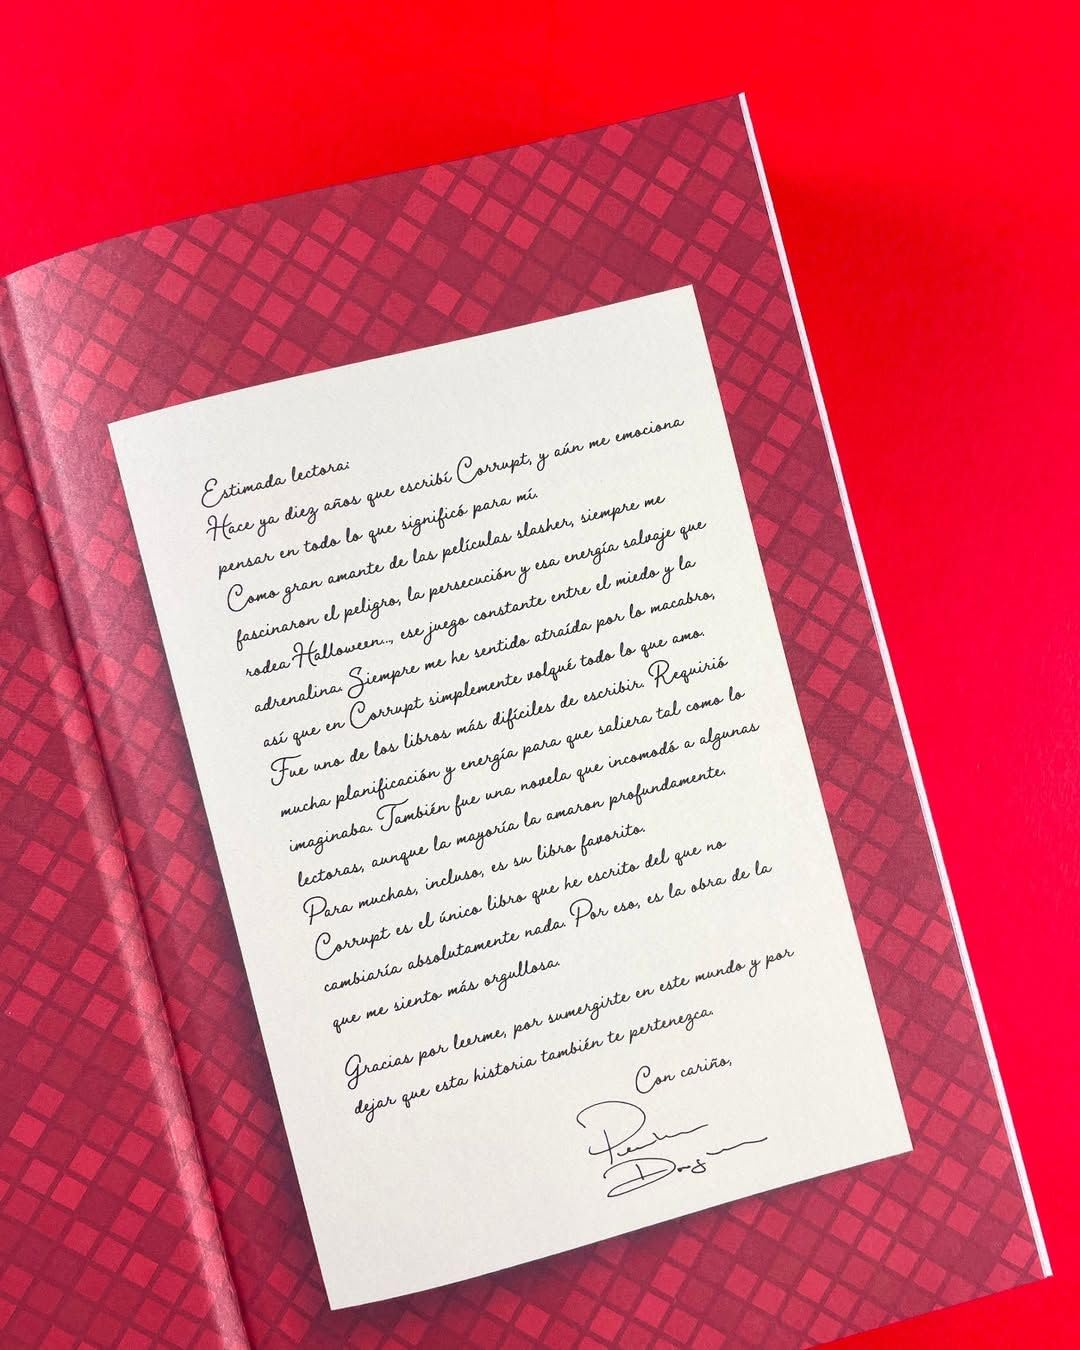 Estimada lectora:
Hace ya diez años que escribí Corrupt, y aún me emociona
pensar en todo lo que significó para mí.
Como gran amante de las películas slasher, siempre me
fascinaron el peligro, la persecución y esa energía salvaje que
rodea Halloween..., ese juego constante entre el miedo y la
adrenalina. Siempre me he sentido atraída por lo macabro,
así que en Corrupt simplemente volqué todo lo que amo.
Fue uno de los libros más difíciles de escribir. Requirió
mucha planificación y energía para que saliera tal como lo
imaginaba. También fue una novela que incomodó a algunas
lectoras, aunque la mayoría la amaron profundamente.
Para muchas, incluso, es su libro favorito.
Corrupt es el único libro que he escrito del que no
cambiaría absolutamente nada. Por eso, es la obra de la
que me siento más orgullosa.
Gracias por leerme, por sumergirte en este mundo y por
dejar que esta historia también te pertenezca.
Con cariño,